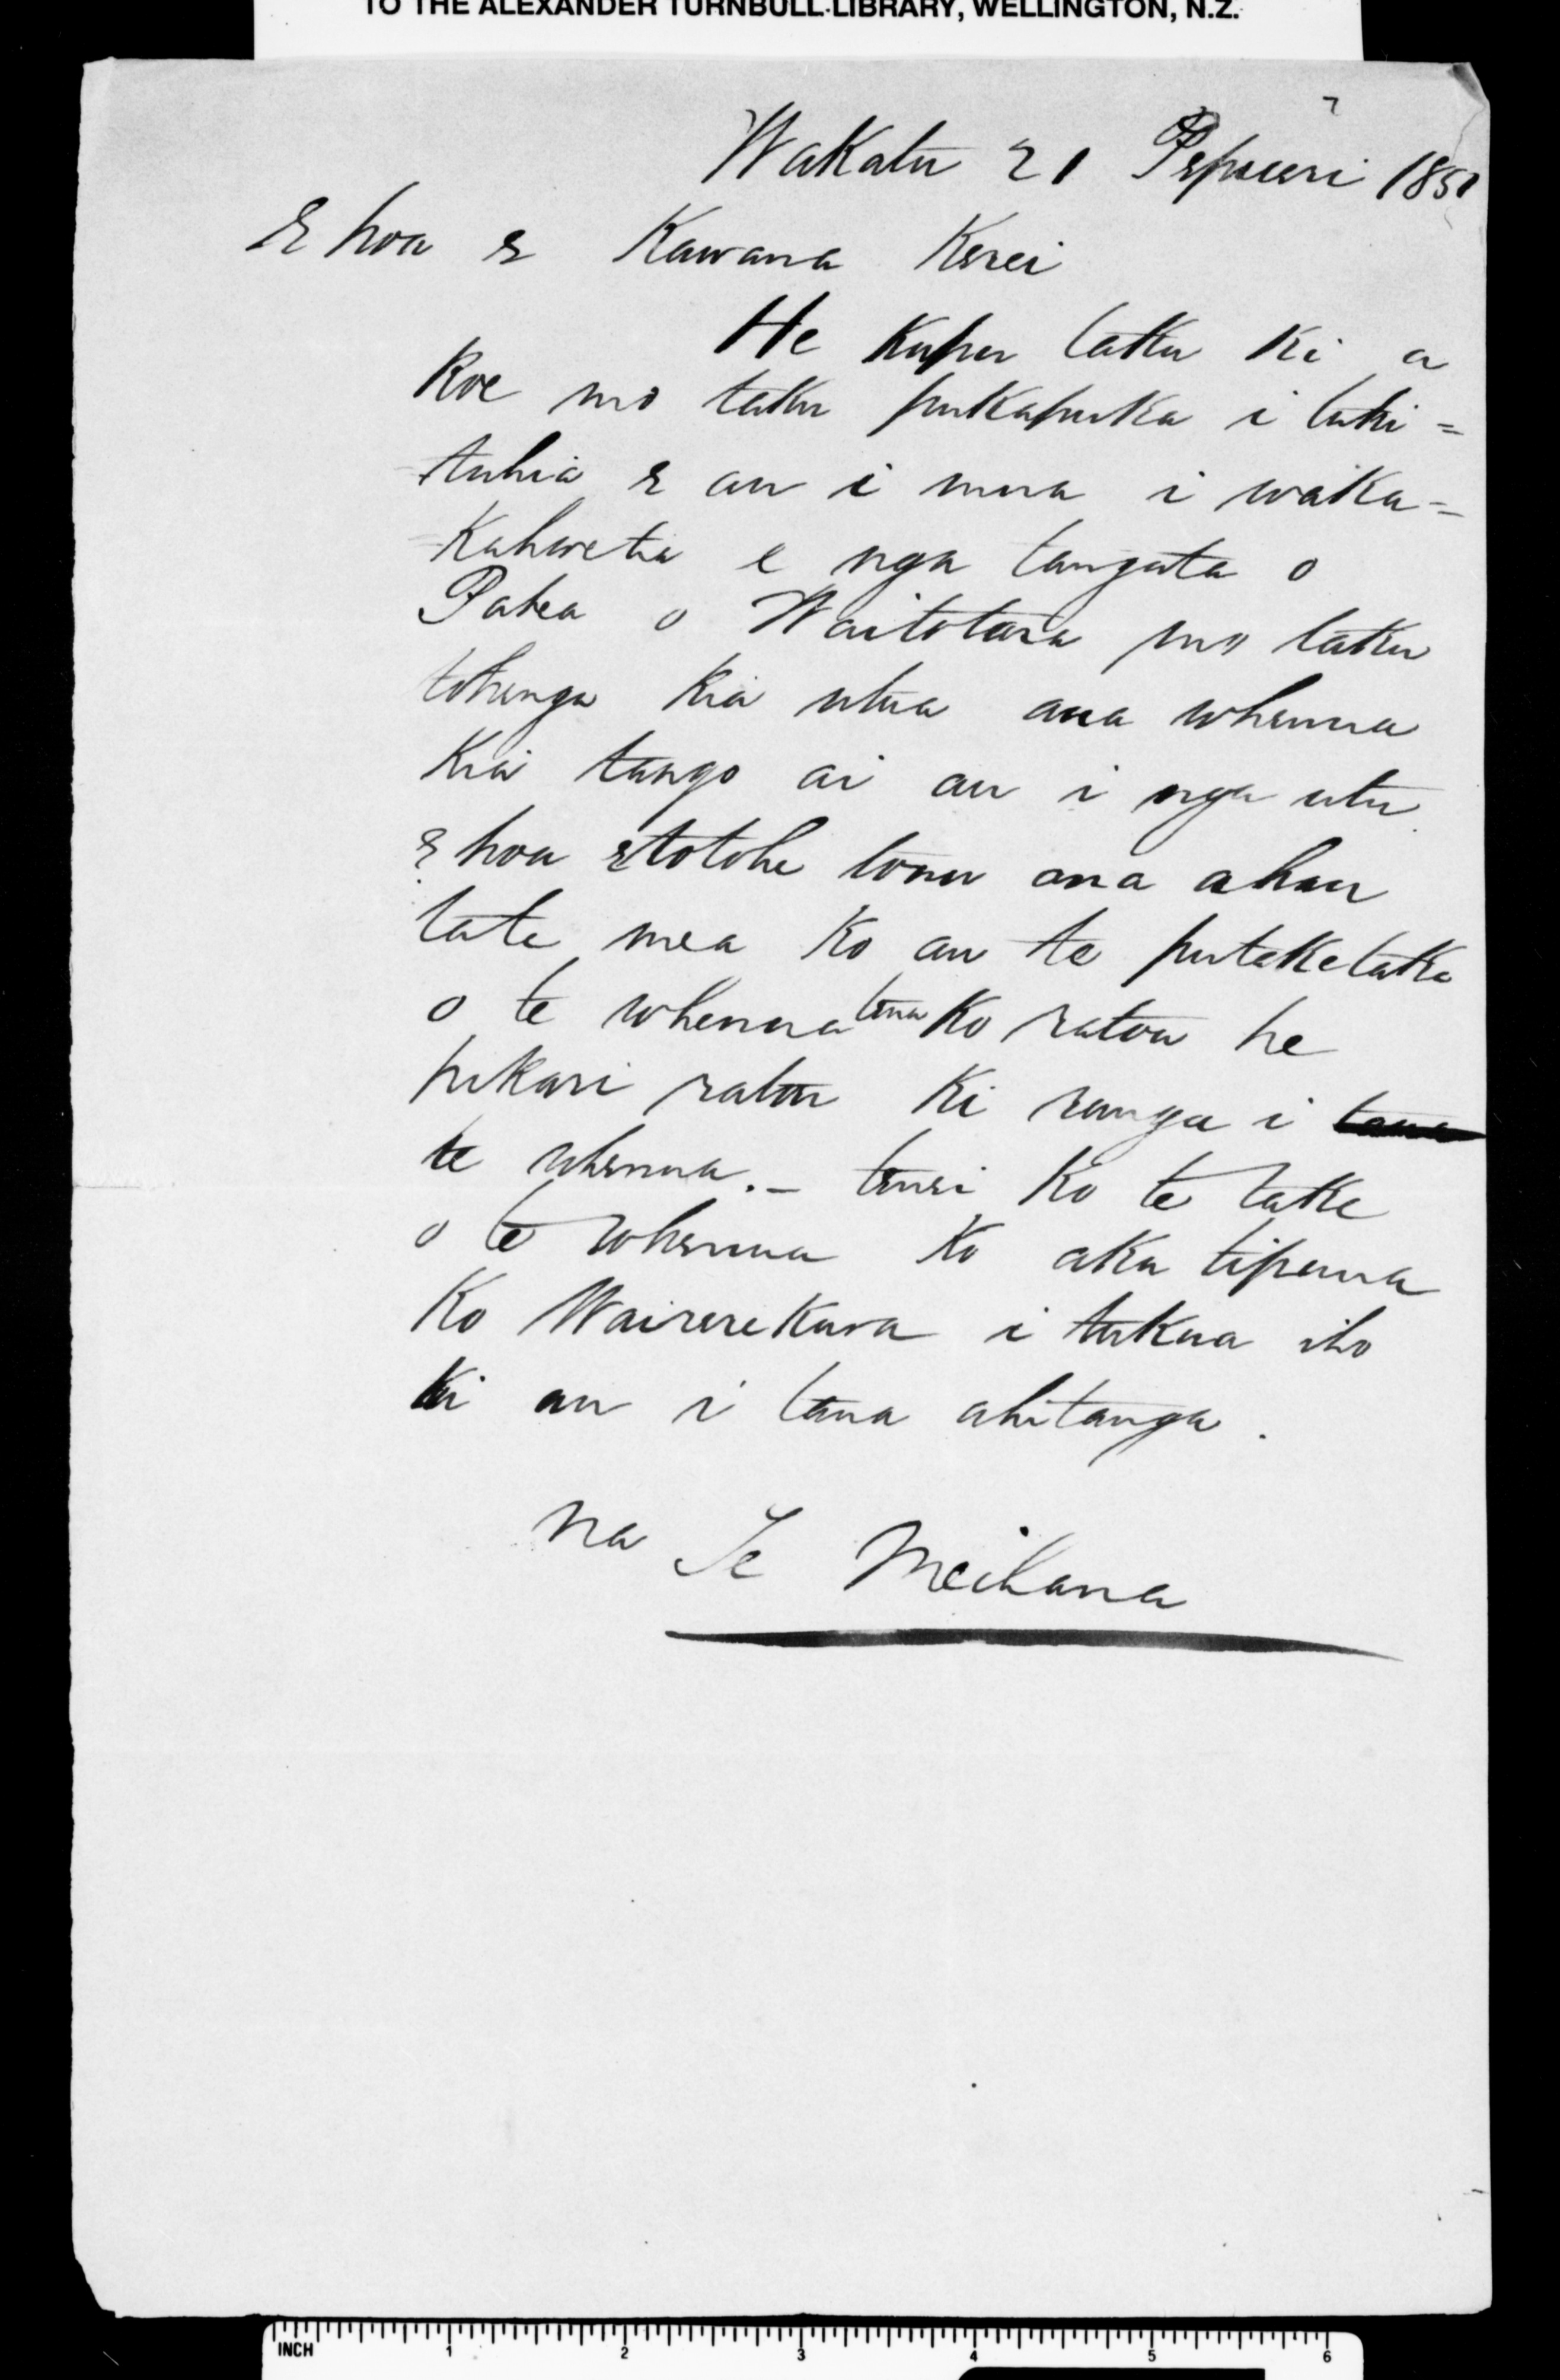 TO THE ALEXANDER TURNBULL LIBRARY, WELLINGTON, N.Z.
Wakatu 21 Pepueri 1851
E hoa e Kawana Kerei
He kupu taku ki a
koe mo taku pukapuka i tuhi=
tuhia e au i mua i waka=
=kahoretia e nga tangata o
Patea o Waitotara mo taku
tohenga kia utua ana whenua
kia tango ai au i nga utu
e hoa e totohe tonu ana ahau
tate mea ko au te putaketake
o te whenua tena ko ratou he
pukari ratou ki runga i
te whenua. – tenei ko te take
o te whenua ko aku tipuna
ko Wairerekura i tukua iho
ki au i tana ahitanga.
na Te Meihana
INCH 1 2 3 4 5 6